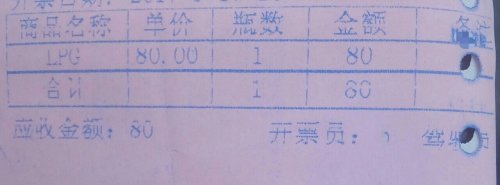 开票日期: 2017
商品名称 单价 瓶数 金额 备注
LPG 80.00 1 80
合计 1 80
应收金额: 80 开票员: 驾驶员